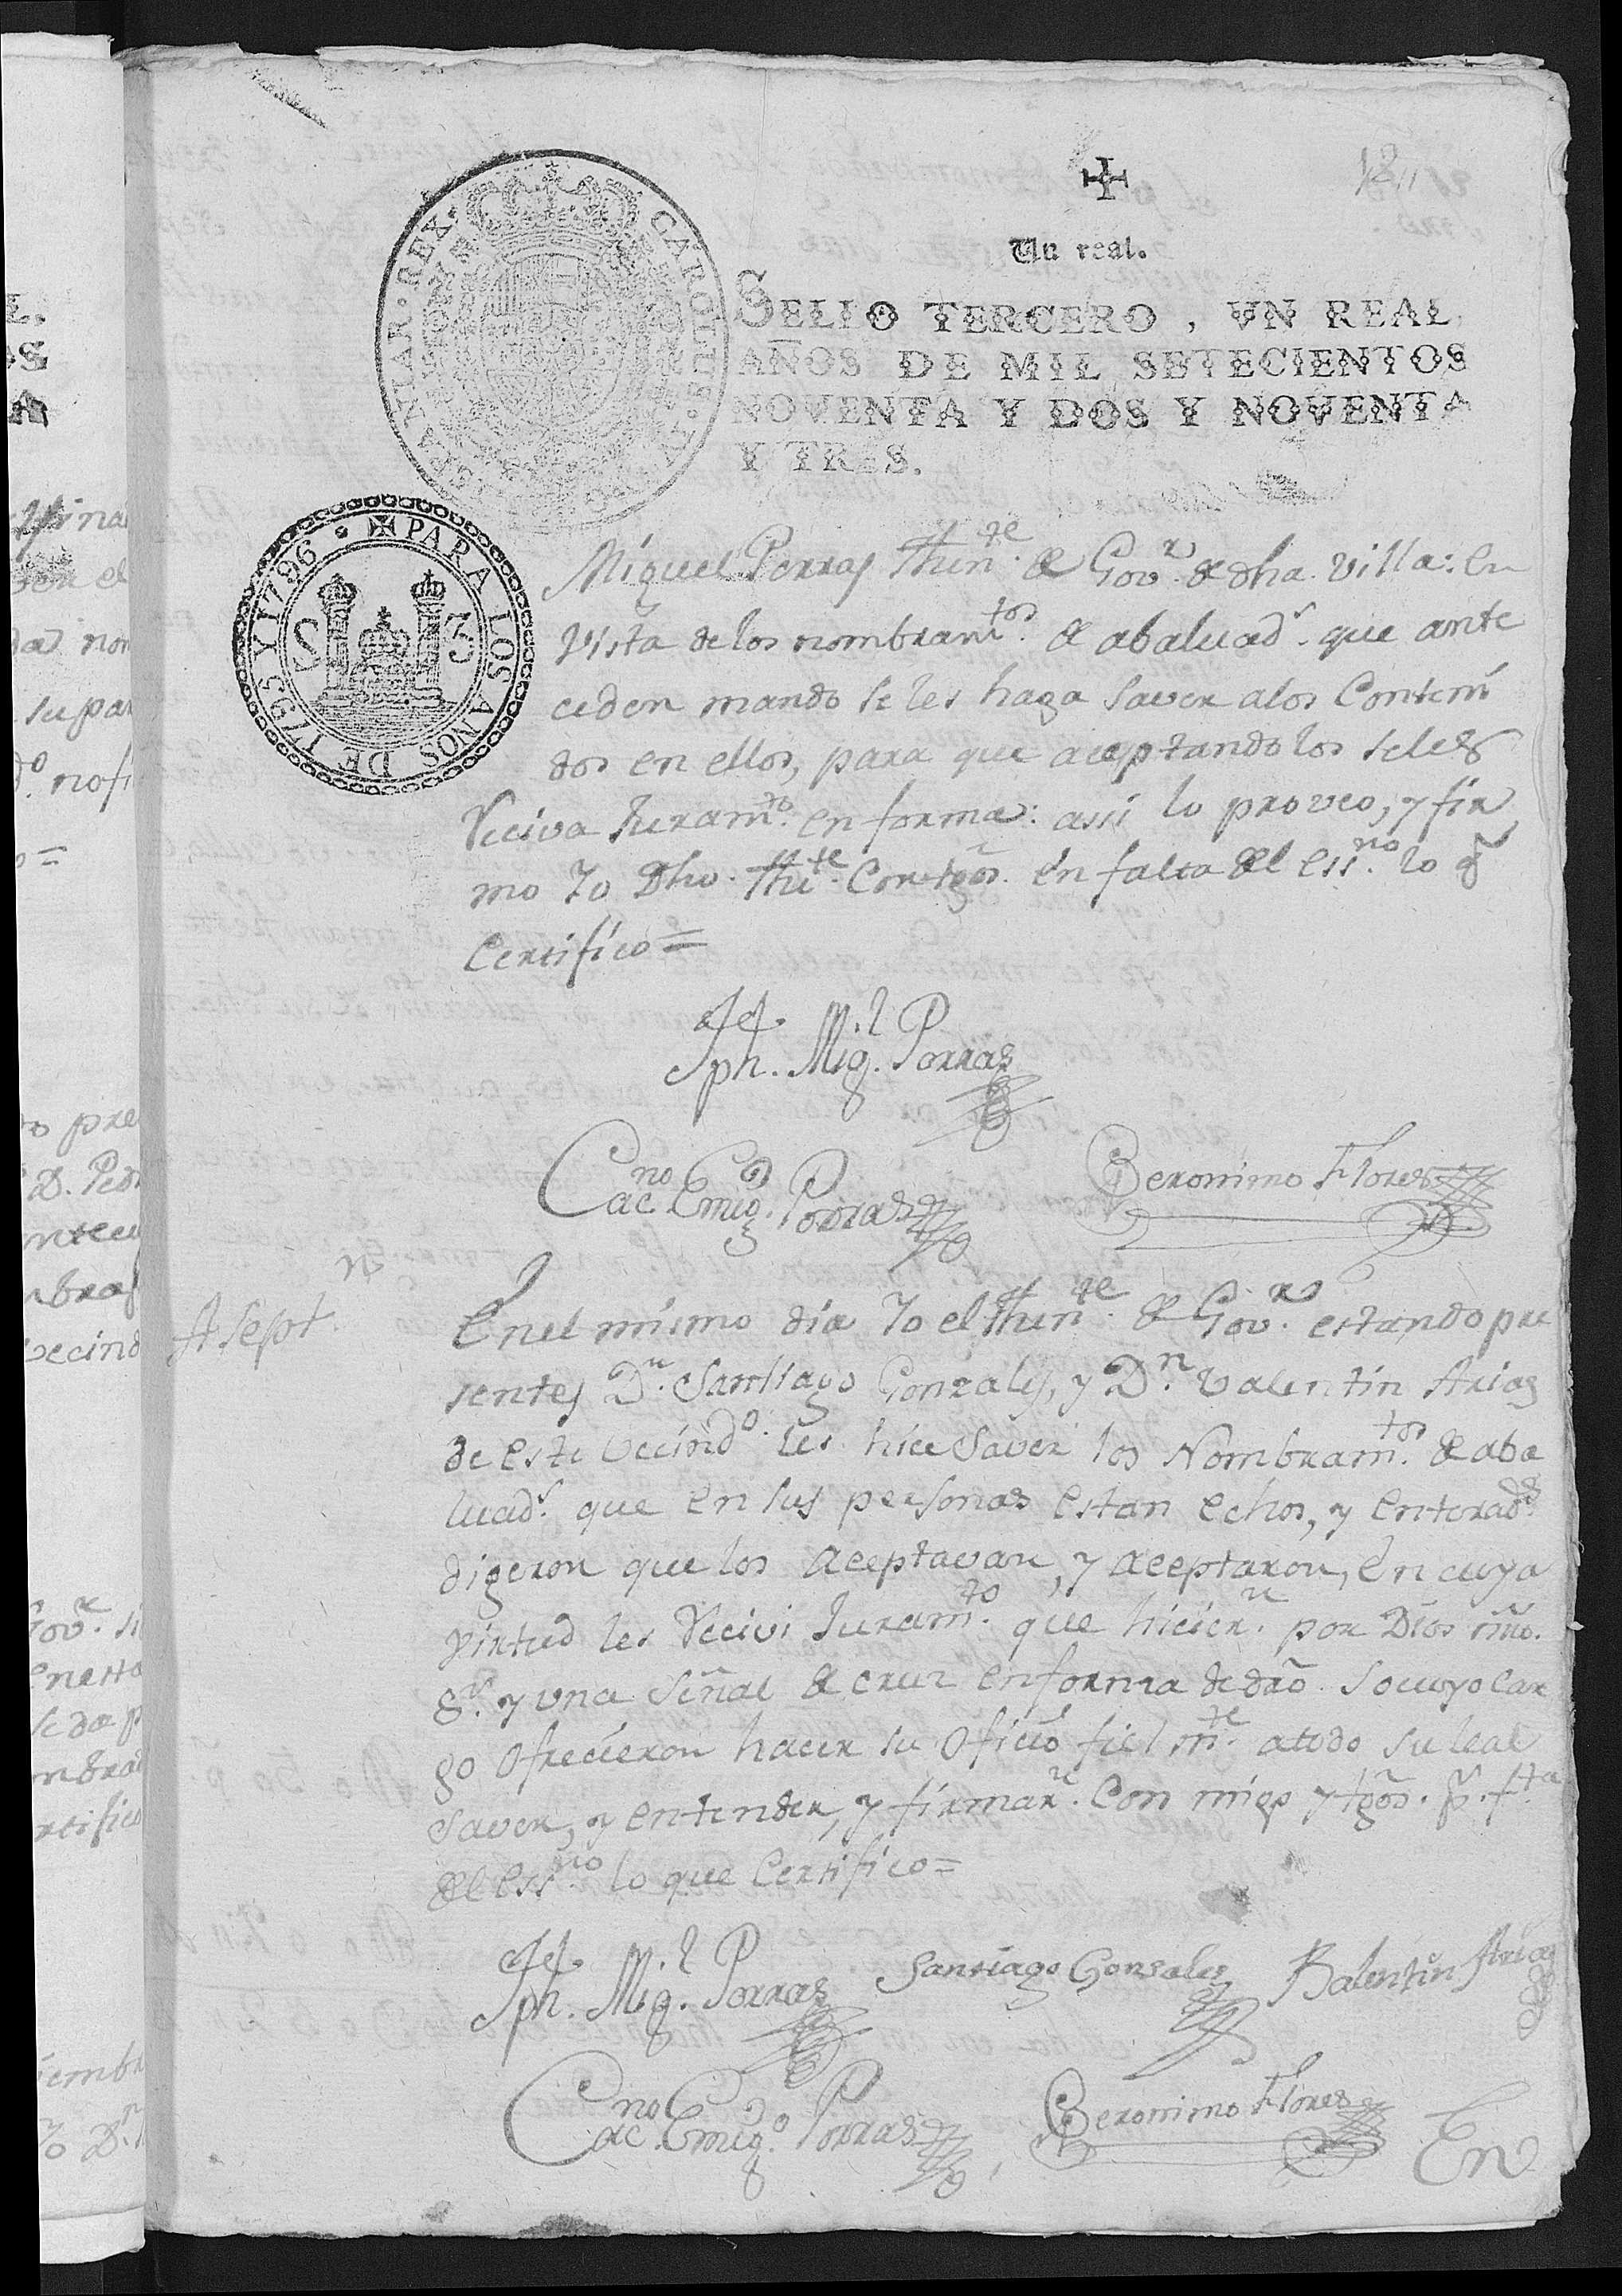 12,,
Un real.
SELLO TERCERO, VN REAL,
AÑOS DE MIL SETECIENTOS
NOVENTA Y DOS Y NOVENTA
Y TRES.
PARA LOS AÑOS DE 1795 Y 1796
S 3
Miguel Porras Thene. de Govr. de dha. villa: en
vista de los nombramtos. de abaluads. que ante
ceden mando se les haga saver alos Conteni
dos en ellos, para que aceptandolos seles
Reciva Juramto. en forma: assi lo proveo, y fir
mo Yo Dho. Thte. Con tgos. en falta del essno. lo q̃
Certifico=
Jph. Migl. Porras
Geronimo Flores
Aseptn.
En el mismo dia Yo el Thente. de Govor. estando pre
sentes Dn. Santiago Gonzales, y Dn. Valentin Arias
de este vecindo. les hice saver los Nombramtos. de aba
luads. que en sus personas estan echos, y enterados
digeron que los aceptavan, y aceptaron, en cuya
virtud les Recivi Juramto. que hiciern. por Dios nr̃o.
Sr. y una señal de cruz en forma de dr̃o. so cuyo car
go ofrecieron hacer su oficio fielmte. a todo su leal
saver, y entender, y firmarn. Con migo y tgos. pr. fta.
del essno. lo que Certifico=
Jph. Migl. Porras Santiago Gonsales Balentin Arias
Geronimo Flores
En